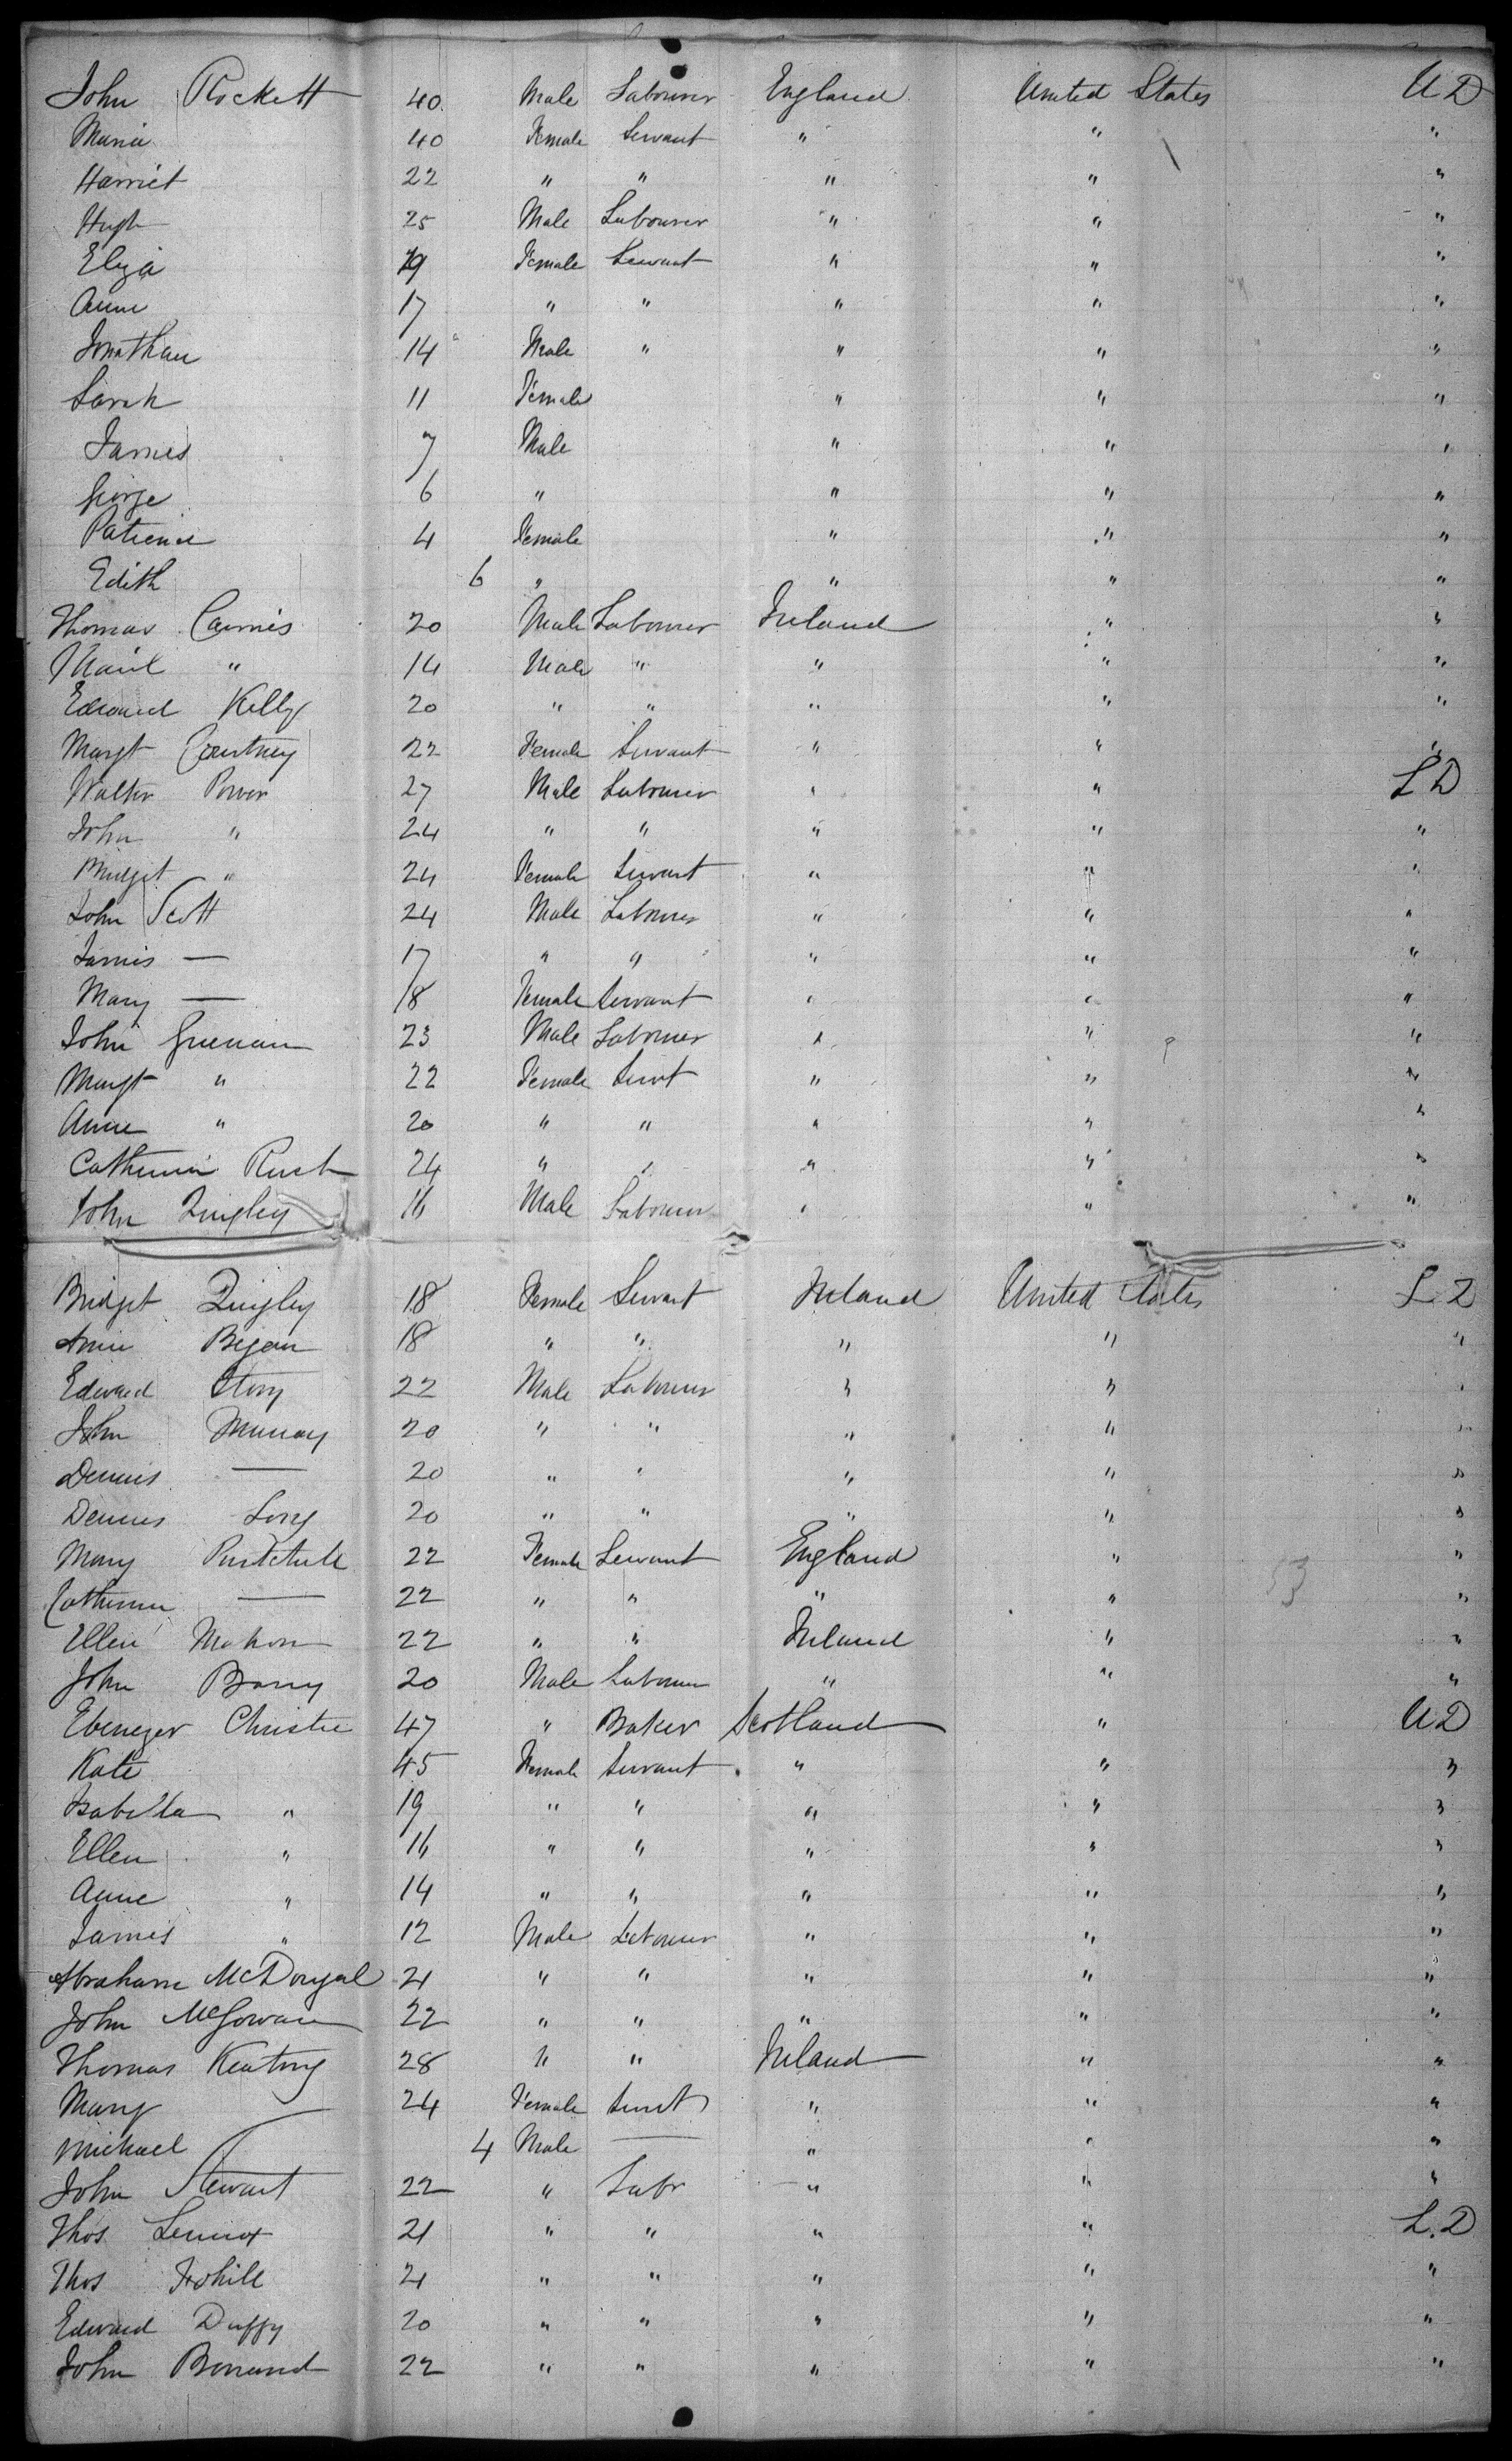 John Rockett 40 Male Labourer England United States U D
Maria 40 Female Servant " " "
Harriet 22 " " " " "
Hugh 25 Male Labourer " " "
Eliza 19 Female Servant " " "
Anne 17 " " " " "
Jonathan 14 Male " " " "
Sarah 11 Female " " "
James 7 Male " " "
George 6 " " " "
Patience 4 Female " " "
Edith 6 " " " "
Thomas 20 Male Labourer Ireland " "
" 14 Male " " " "
Edward Kelly 20 " " " " "
Margt Courtney 22 Female Servant " " "
Walter Power 27 Male Labourer " " L D
John " 24 " " " " "
Bridget " 24 Female Servant " " "
John Scott 24 Male Labourer " " "
James — 17 " " " " "
Mary — 18 Female Servant " " "
John 23 Male Labourer " " "
Margt " 22 Female Servt " " "
Anne " 20 " " " " "
Catherine 24 " " " " "
John Quigley 16 Male Labourer " " "
Bridget Quigley 18 Female Servant Ireland United States L D
Annie 18 " " " " "
Edward Story 22 Male Labourer " " "
John Murray 20 " " " " "
Dennis — 20 " " " " "
Dennis Long 20 " " " " "
Mary 22 Female Servant England " "
Catherine — 22 " " " " "
Ellen Mahon 22 " " Ireland " "
John Barry 20 Male Labourer " " "
Ebenezer Christie 47 " Baker Scotland " U D
Kate 45 Female Servant " " "
Isabella " 19 " " " " "
Ellen " 16 " " " " "
Anne " 14 " " " " "
James " 12 Male Labourer " " "
Abraham McDougal 21 " " " " "
John McGowan 22 " " " " "
Thomas Keating 28 " " Ireland " "
Mary 24 Female Servt " " "
Michael 4 Male — " " "
John Stewart 22 " Labr " " "
Thos Lennox 21 " " " " L. D
Thos 21 " " " " "
Edward Duffy 20 " " " " "
John 22 " " " " "
53